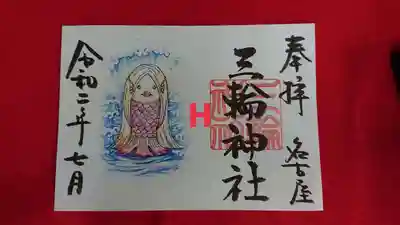 奉拝
名古屋
三輪神社
H
令和二年七月